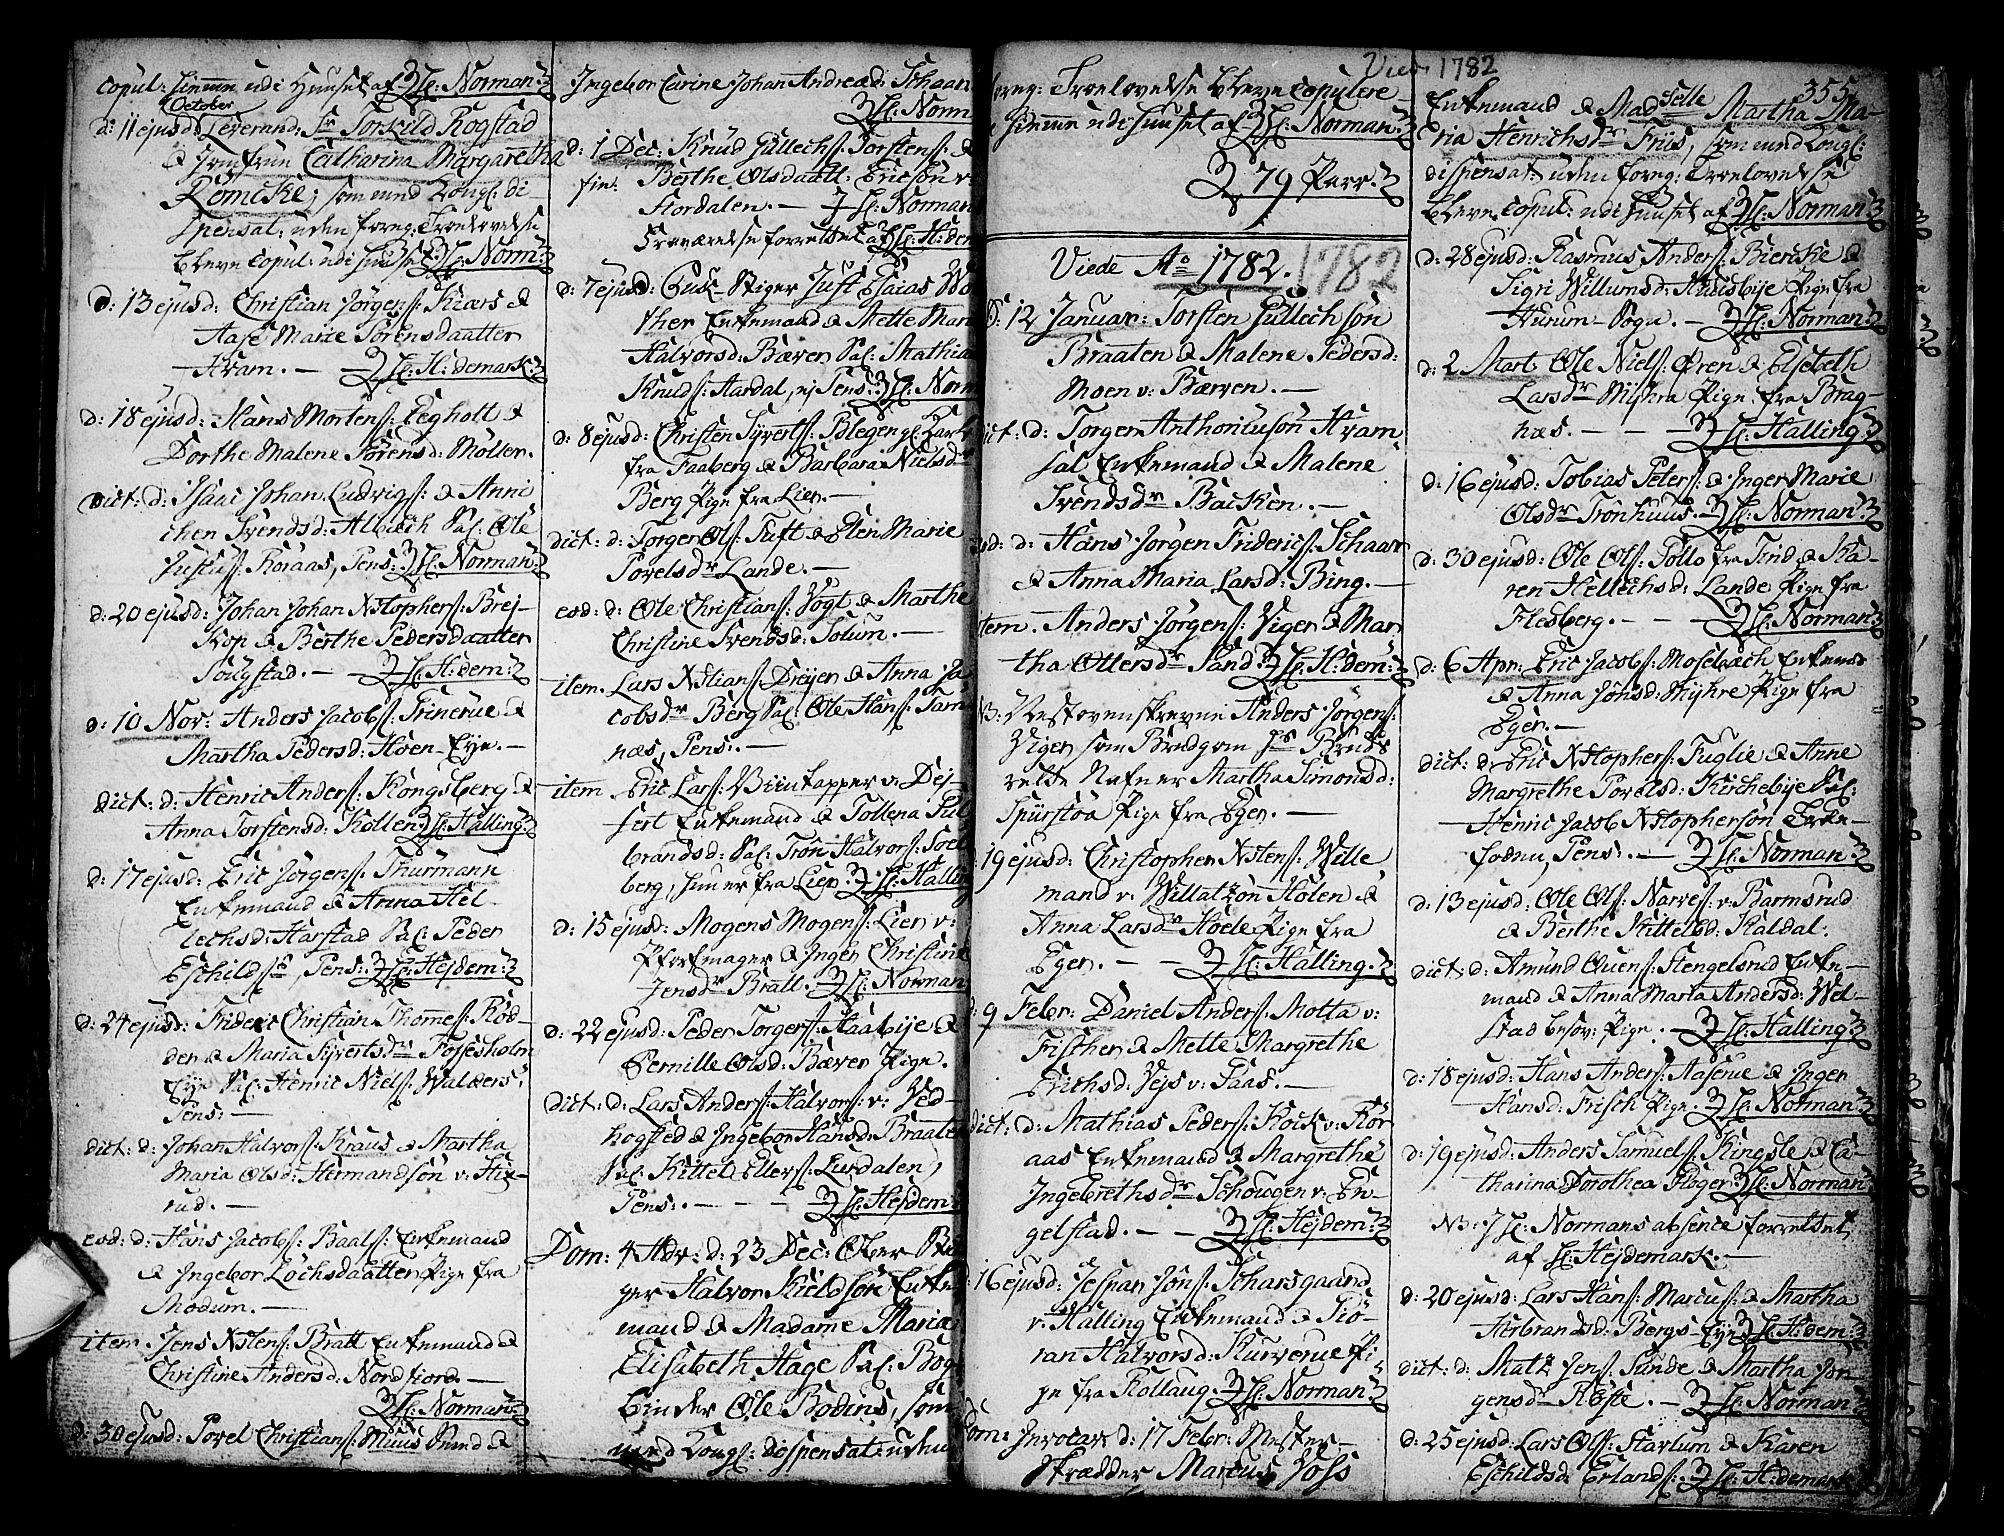 copul: hiemme udi Huuset af H. Norman.
October
d: 11 ejusd: Leverand. Sr Torkild Rogstad
& Jomfrue Catharina Margaretha
Römcke, som med Kongl. di-
spensat: uden foreg: Troelovelse
bleve copul: udi Huuset H. Norm:
d: 13 ejusd: Christian Jörgens: Kiærs &
Aase Marie Sörensdaatter
Hvam. — H. H:demark:
d: 18 ejusd: Hans Mortens: Egholt &
Dorthe Malene Sörensd: Möller.
dict: d: Isaac Johan Ludvigs: & Anni
chen Svendsd: Albech Sal: Ole
Justus: Roraas, Pens: H. Norman:
d: 20 ejusd: Johan Johan Xstophers: Brej-
kop & Berthe Pedersdaatter
Sougstad. — H. H:dem:
d: 10 Nov: Anders Jacobs: Trinerue &
Martha Pedersd: Höen-Eye. —
dict: d: Henric Anders: Kongsberg &
Anna Torstensd: Kollen H. Halling
d: 17 ejusd: Eric Jörgens: Thurmann
Enkemand & Anna Hel
lechsd: Harstad Sal: Peder
Eschilds: Pens: H. Hejdem:
d: 24 ejusd: Frideric Christian Thomes: Röd-
den & Maria Syvertsdr Fossesholm
Eye Sal: Henric Niels: Walders:
Pens: —
dict: d: Johan Halvors: Kraus & Martha
Maria Olsd: Hermandsön v: Hix-
rud. —
eod: d: Hans Jacobs: Baals: Enkemand
& Ingebor Lochsdaatter Pige fra
Modum. —
item. Jens Xstens: Bratt Enkemand &
Christine Andersd: Nordfiord —
H. Norman
d: 30 ejusd: Povel Christians: Muus Svend &
Ingebor Carine Johan Andreæd: Schaan
H. Norm
d: 1 Dec: Knud Gullechs: Torstens: &
Berthe Olsdaatt: Ericsön v:
Fiordalen. — I H. Norman
fraværelse forrettet af H. H:dem
d: 7 ejusd: Just Esaias Wo
ther Enkemand & Mette Mar
Halvorsd: Bæver Sal: Mathia
Knuds: Aardal, Pens: H. Norm
d: 8 ejusd: Christen Syverts: Blegen
fra Faaberg & Barbara Nielsdr
Berg Pige fra Lier. —
dict: d: Torger Ols: Tuft & Elen Marie
Povelsdr Lande. —
eod: d: Ole Christians: Vogt & Marthe
Christine Svendsd: Solum. —
item. Lars Xstians: Dreyer & Anna Ja
cobsdr Berg Sal: Ole Hans: Tarn
næs, Pens: —
item. Eric Lars: Viintapper v: Dej-
sert Enkemand & Tollena Gul
brandsd: Sal: Tron Halvors: Soel
berg, hun er fra Lier. H. Halling
d: 15 ejusd: Mogens Mogens: Lier v:
& Inger Christine
Jensdr Bratt. H. Norman
d: 22 ejusd: Peder Torgers: Haabije &
Pernille Olsd: Bæver Pige.
dict: d: Lars Anders: Halvors: v: Ved-
hogsted & Ingebor Hansd: Braaten
Sal: Kittel Ellers: Lurdalen,
Pens: — — H. Hejdem:
Dom: 4 Adv: d: 23 Dec: Ober Sti
ger Halvor Kieldsön Enke
mand & Madame Maria
Elisabeth Hage Sal: Bog
binder Ole Bodins, som
med Kongl: dispensat: uden
foreg: Troelovelse bleve copulere
hiemme udi Huuset af H. Norman:
79 Parr.
Vied. 1782
Viede Ao 1782. 1782
d: 12 Januar: Torsten Gullechsön
Braaten & Malene Pedersd:
Moen v: Bærven. —
dict: d: Torger Anthoniusön Hvam
sal Enkemand & Malene
Svendsdr Backen. —
eod: d: Hans Jörgen Friderics: Schaar
& Anna Maria Larsd: Bing. —
item. Anders Jörgens: Viger & Mar
tha Ottersdr Sand: H. H:dem:
NB: Anders Jörgens:
Viger som Brudgom Brude
rette Nafn er Martha Simonsd:
Spurstöa Pige fra Eger. —
19 ejusd: Christopher Xstens: Wille
mand v: Willatzön Holen &
Anna Larsdr Hoele Pige fra
Eger. — — H. Halling.
9 Febr: Daniel Anders: Motta v:
Fischer & Mette Margrethe
Erichsd: Vejs v: Saas. —
dict: d: Mathias Peders: Kock v: Rör
aas Enkemand & Margrethe
Ingebrethsdr Schougen v: En-
gelstad. — — H. Hejdem:
16 ejusd: Jespar Jöns: Scharsgaard
v: Halling Enkemand & Siö-
ran Halvorsd: Kurverue Pi-
ge fra Rollaug. H. Norman
Dom: Invocav d: 17 Febr: Mester-
Skrædder Marcus Voss
355
Enkemand & Madselle Martha Ma-
ria Henrichsdr Friis, som med Kongl:
dispensat: uden foreg: Troelovelse
bleve copul: udi Huuset af H. Norman:
d: 28 ejusd: Rasmus Anders: Biercke &
Sigri Willumsd: Huusbye Pige fra
Hurum-Sogn. — H. Norman
d: 2 Mart Ole Niels: Ören & Elsebeth
Larsdr Myhra Pige fra Brag-
næs. — — H. Halling
d: 16 ejusd: Tobias Peters: & Inger Marie
Olsdr Tronhuus. — H. Norman:
d: 30 ejusd: Ole Ols: Tollo fra Tind & Ka-
ren Hellechsd: Lande Pige fra
Flesberg. — — H. Norman:
d: 6 Apr: Eric Jacobs: Mosebach Enkemd
& Anna Jönsd: Myhre Pige fra
Eger. —
dict: d: Eric Xstophers: Fuglie & Anne
Margrethe Povelsd: Kirchebye Sal:
Henric Jacob Xstophersön Erke-
foden, Pens: — H. Norman:
d: 13 ejusd: Ole Ols: Narves: v: Barmsrud
& Berthe Kittelsd: Kaldal.
dict: d: Amund Ouens: Stengelsrud Enke-
mand & Anna Maria Andersd: Wel-
stad besov: Pige. — H. Halling
d: 18 ejusd: Hans Anders: Aaserue & Inger
Hansd: Frisch Pige. H. Norman:
d: 19 ejusd: Anders Samuels: Kingsle & Ca-
tharina Dorothea Ploger H. Norman
NB: I H. Normans absence forrettet
af H. Hejdemark. —
d: 20 ejusd: Lars Hans: Marcus: & Martha
Herbrandsd: Bergs-Eye H. H:dem:
dict: d: Matz Jens: Sunde & Martha Jör-
gensd: Röste. — H. Norman
d: 25 ejusd: Lars Ols: Starlum & Karen
Eschildsd: Erlands: H. H:demark